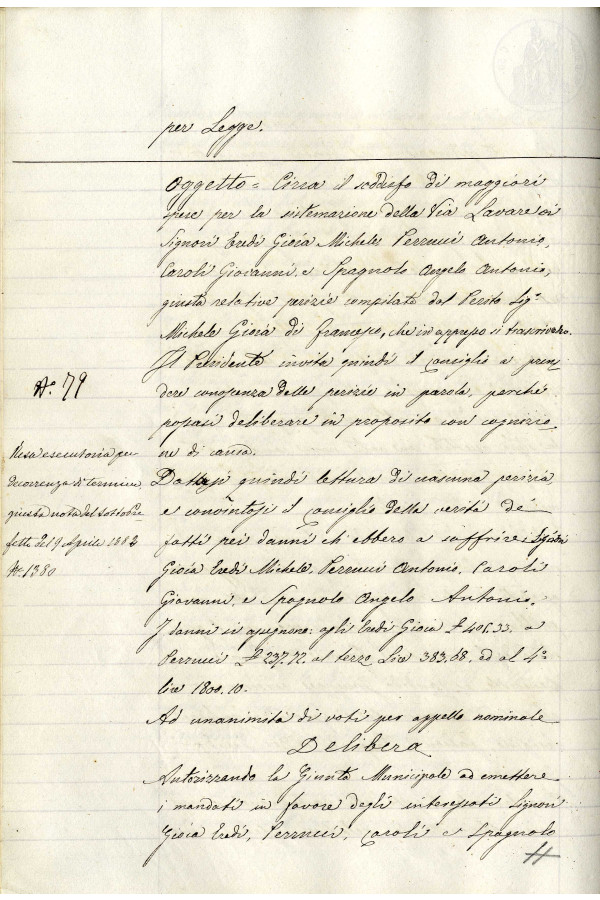 per Legge.
Oggetto = Circa il soddisfo di maggiori
spese per la sistemazione della Via Lavare ai
Signori Eredi Gioia Michele Perrucci Antonio,
Caroli Giovanni, e Spagnolo Angelo Antonio,
giusta relative perizie compilate dal Perito Sigr
Michele Gioia di Francesco, che in appresso si trascrivono.
Il Presidente invita quindi il Consiglio a pren-
dere conoscenza delle perizie in parola, perché
possasi deliberare in proposito con cognizio-
ne di causa.
Dattasi quindi lettura di ciascuna perizia
e convintosi il Consiglio della verità de
fatti pei danni ch'ebbero a soffrire i Signori
Gioia Eredi Michele, Perrucci Antonio, Caroli
Giovanni, e Spagnolo Angelo Antonio.
I danni si ascegnono: agli Eredi Gioia £ 405.33. a
Perrucci £ 237.72. al terzo Lire 383.68. ed al 4°
lire 1800.10.
Ad unanimità di voti per appello nominale
Delibera
Autorizzando la Giunta Municipale ad emettere
i mandati in favore degli interessati Signori
Gioia Eredi, Perrucci, Caroli e Spagnolo
N° 79
Resa esecutoria per
decorrenza di termine
giusta nota del Sottopre-
fetto del 9 Aprile 1882
N. 1380